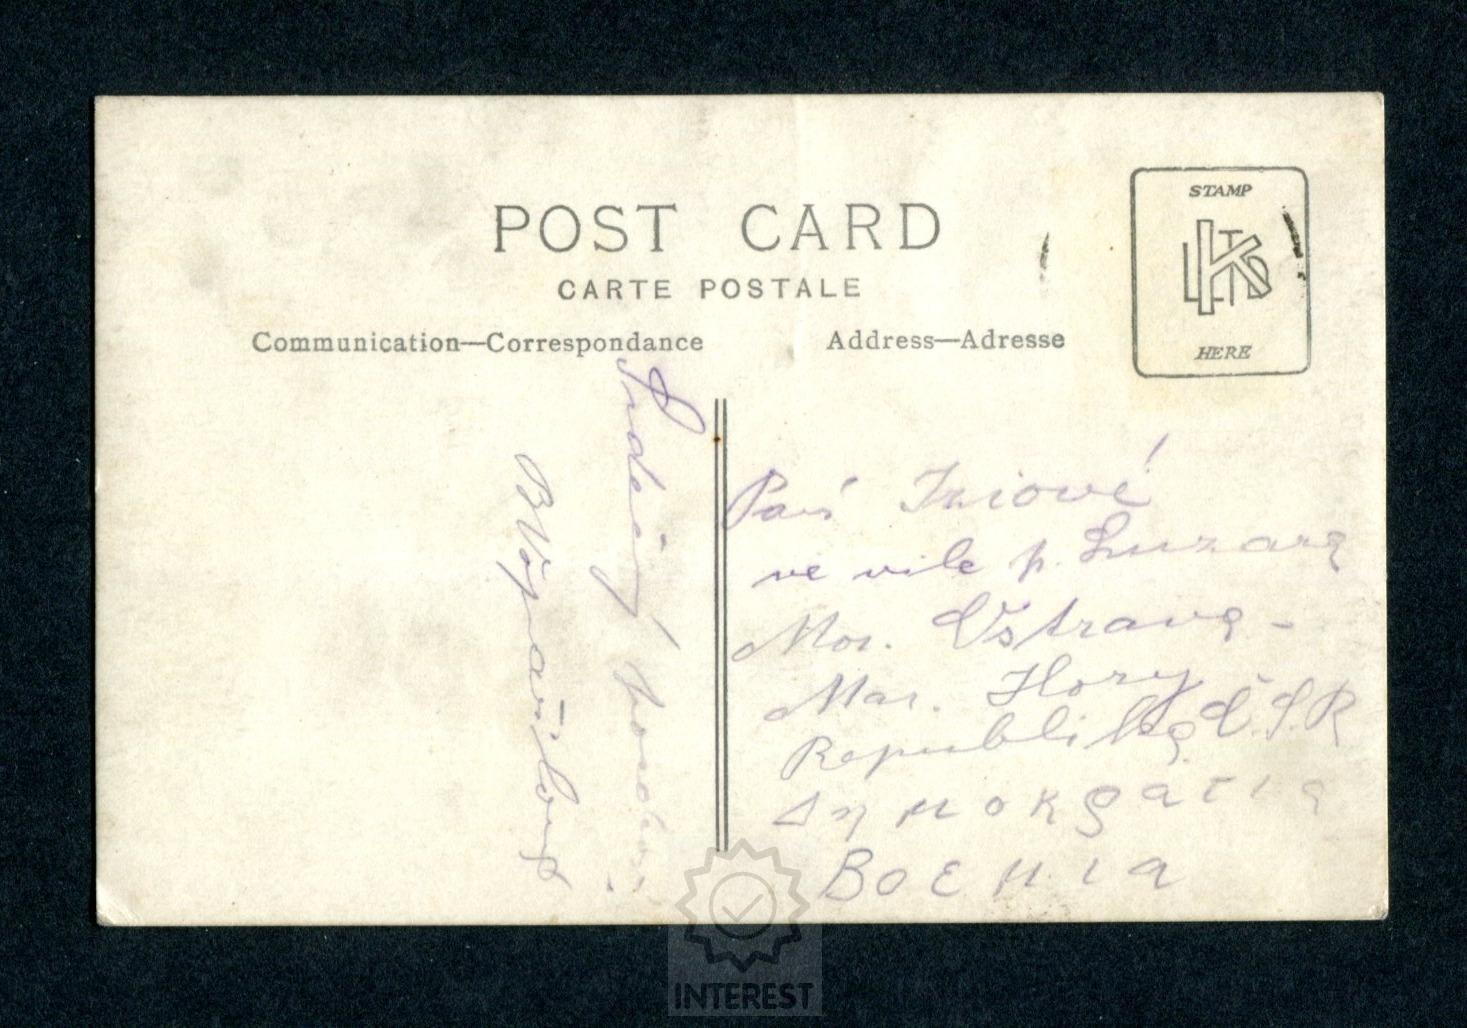 POST CARD
CARTE POSTALE
Communication—Correspondance
Address—Adresse
STAMP
KLTD
HERE
Srdečný pozdrav
ve vile p.
Mor. Ostrava -
Mar. Hory
Republika Č.S.R
Δημοκρατία
Βοεμία
INTEREST